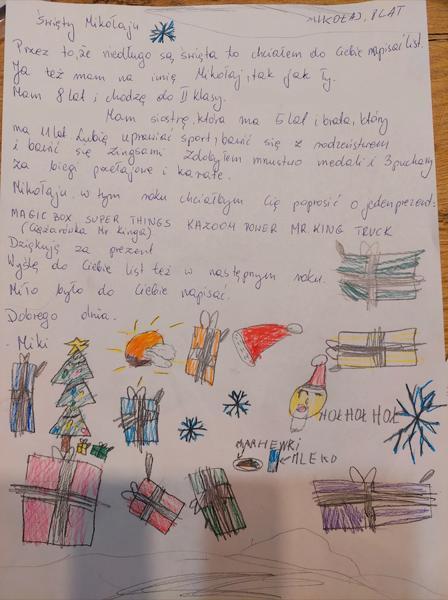 Święty Mikołaju
MIKOŁAJ, 8 LAT
Przez to, że niedługo są święta to chciałem do Ciebie napisać list.
Ja też mam na imię Mikołaj, tak jak Ty.
Mam 8 lat i chodzę do II klasy.
Mam siostrę, która ma 6 lat i brata, który
ma 11 lat. Lubię uprawiać sport, bawić się z rodzeństwem
i bawić się zingsami. Zdobyłem mnustwo medali i 3 puchary
za biegi przełajowe i karate.
Mikołaju w tym roku chciałbym Cię poprosić o jeden prezent:
MAGIC BOX, SUPER THINGS KAZOOM POWER MR. KING TRUCK
(Ciężarówka Mr Kinga)
Dziękuję za prezent
Wyślę do Ciebie list też w następnym roku.
Miło było do Ciebie napisać.
Dobrego dnia.
- Miki
HOŁ HOŁ HOŁ
MARHEWKI
MLEKO